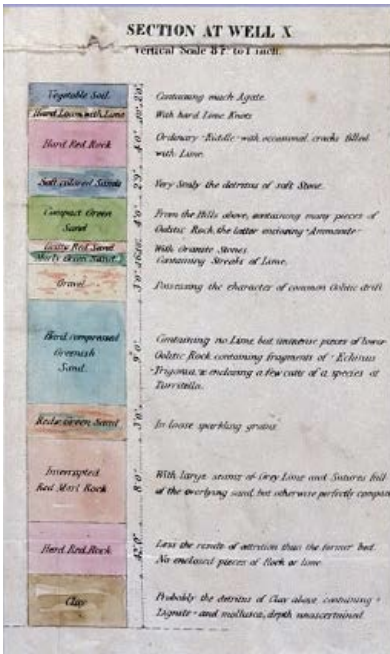 SECTION AT WELL X
Vertical Scale 8 F. to 1 inch.
Vegetable Soil.
Containing much Agate.
Hard Loam with Lime
With hard Lime Knots
Hard Red Rock
Ordinary Riddle with occasional cracks filled
with Lime.
Soft colored Sands
2'9"
Very Scaly the detritus of soft Stone.
Compact Green
Sand
4'0"
From the Hills above, containing many pieces of
Oolitic Rock, the latter enclosing "Ammonite"
Red Sand
With Granite Stones.
Green Sand
Containing Streaks of Lime.
Gravel
3'0"
Possessing the character of common Oolitic drift.
Hard compressed
Greenish
Sand.
9'0"
Containing no Lime but immense pieces of lower
Oolitic Rock containing fragments of "Echinus
Trigonia, & enclosing a few casts of a species of
Turritella.
Red & Green Sand
3'0"
In loose sparkling grains.
Interrupted
Red Marl Rock
8'0"
With large seams of Grey Lime and Sutures full
of the overlying sand, but otherwise perfectly compact
Hard Red Rock
Less the result of attrition than the former bed.
No enclosed pieces of Rock or lime.
Clay
Probably the detritus of Clay above, containing
Lignite and mollusca, depth unascertained.